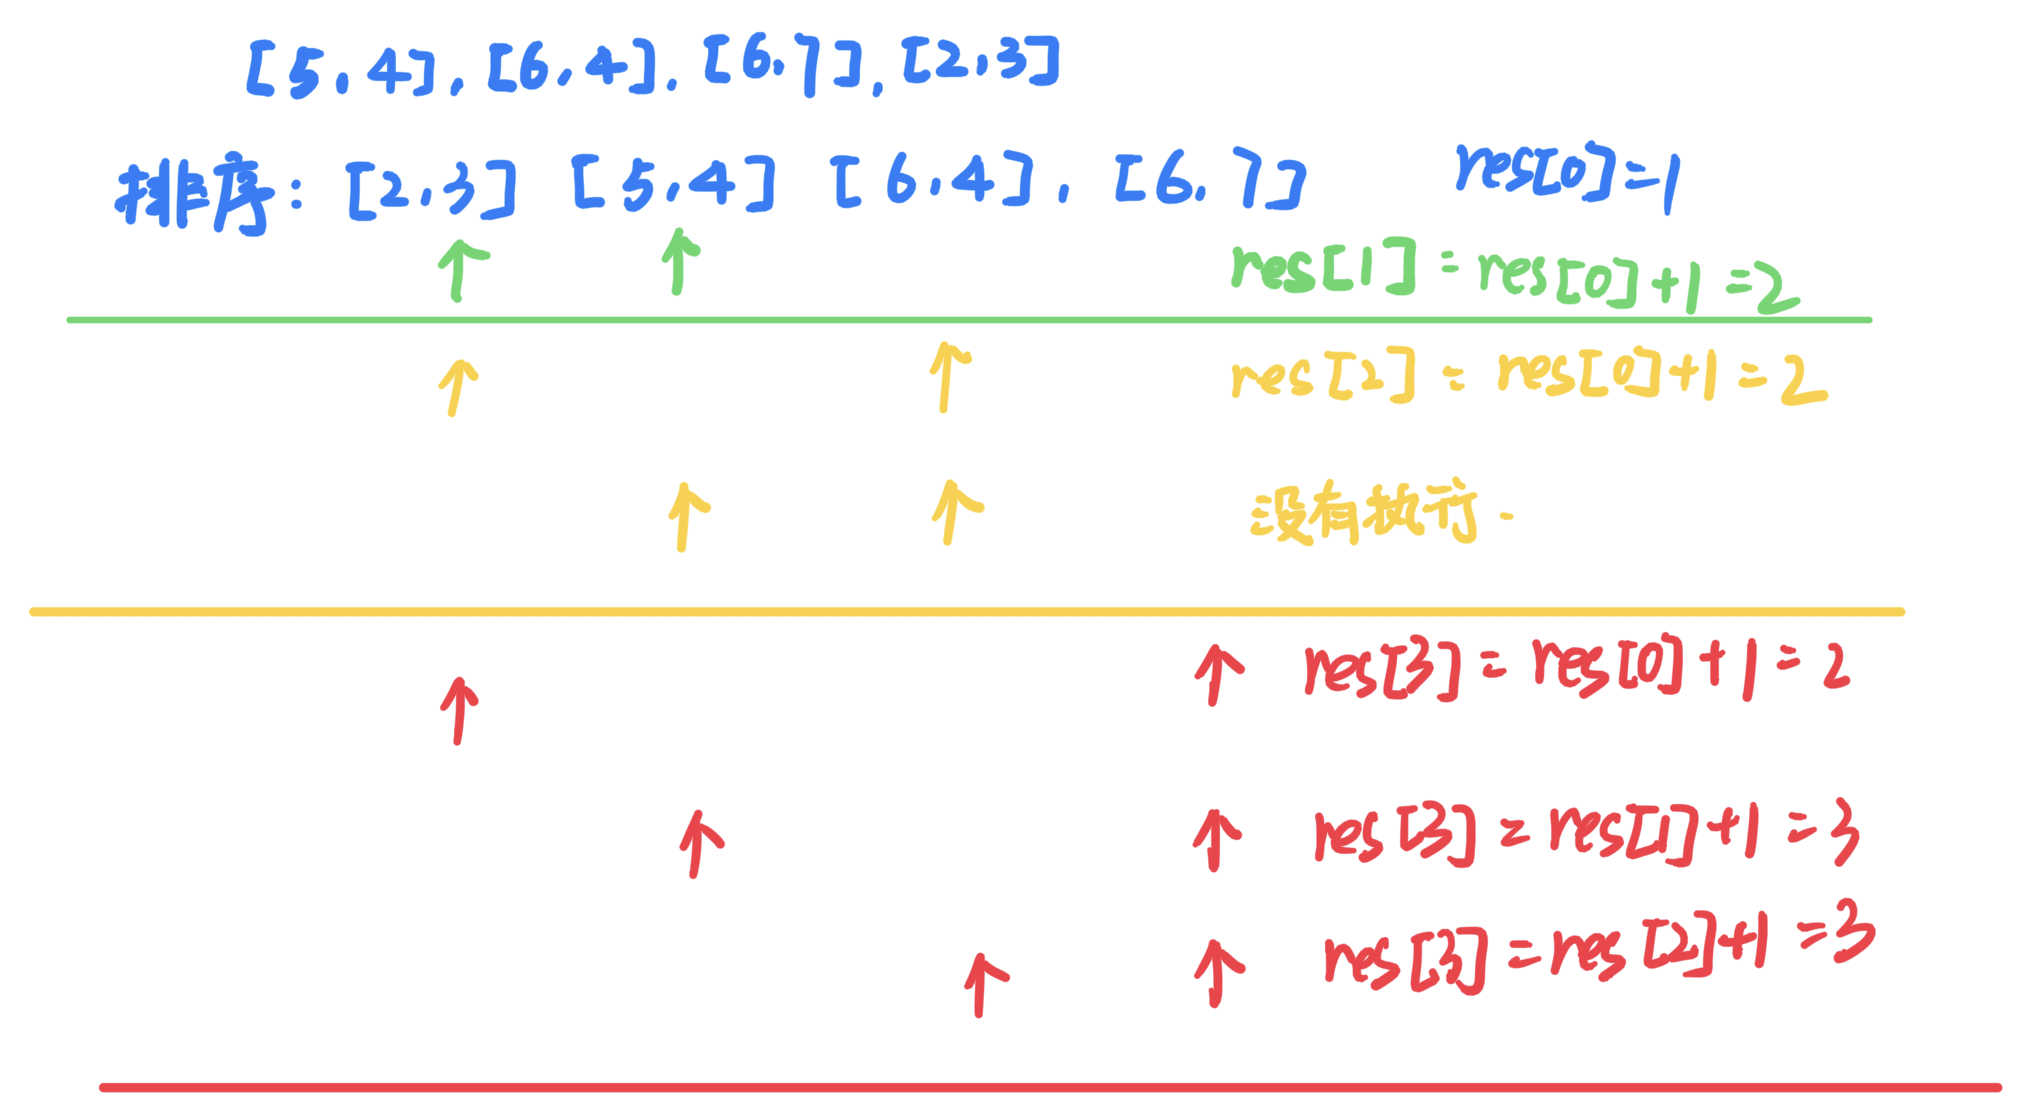 [5,4],[6,4],[6,7],[2,3]
排序: [2,3] [5,4] [6,4], [6,7] res[0]=1
res[1]=res[0]+1=2
res[2]=res[0]+1=2
没有执行.
res[3]=res[0]+1=2
res[3]=res[1]+1=3
res[3]=res[2]+1=3